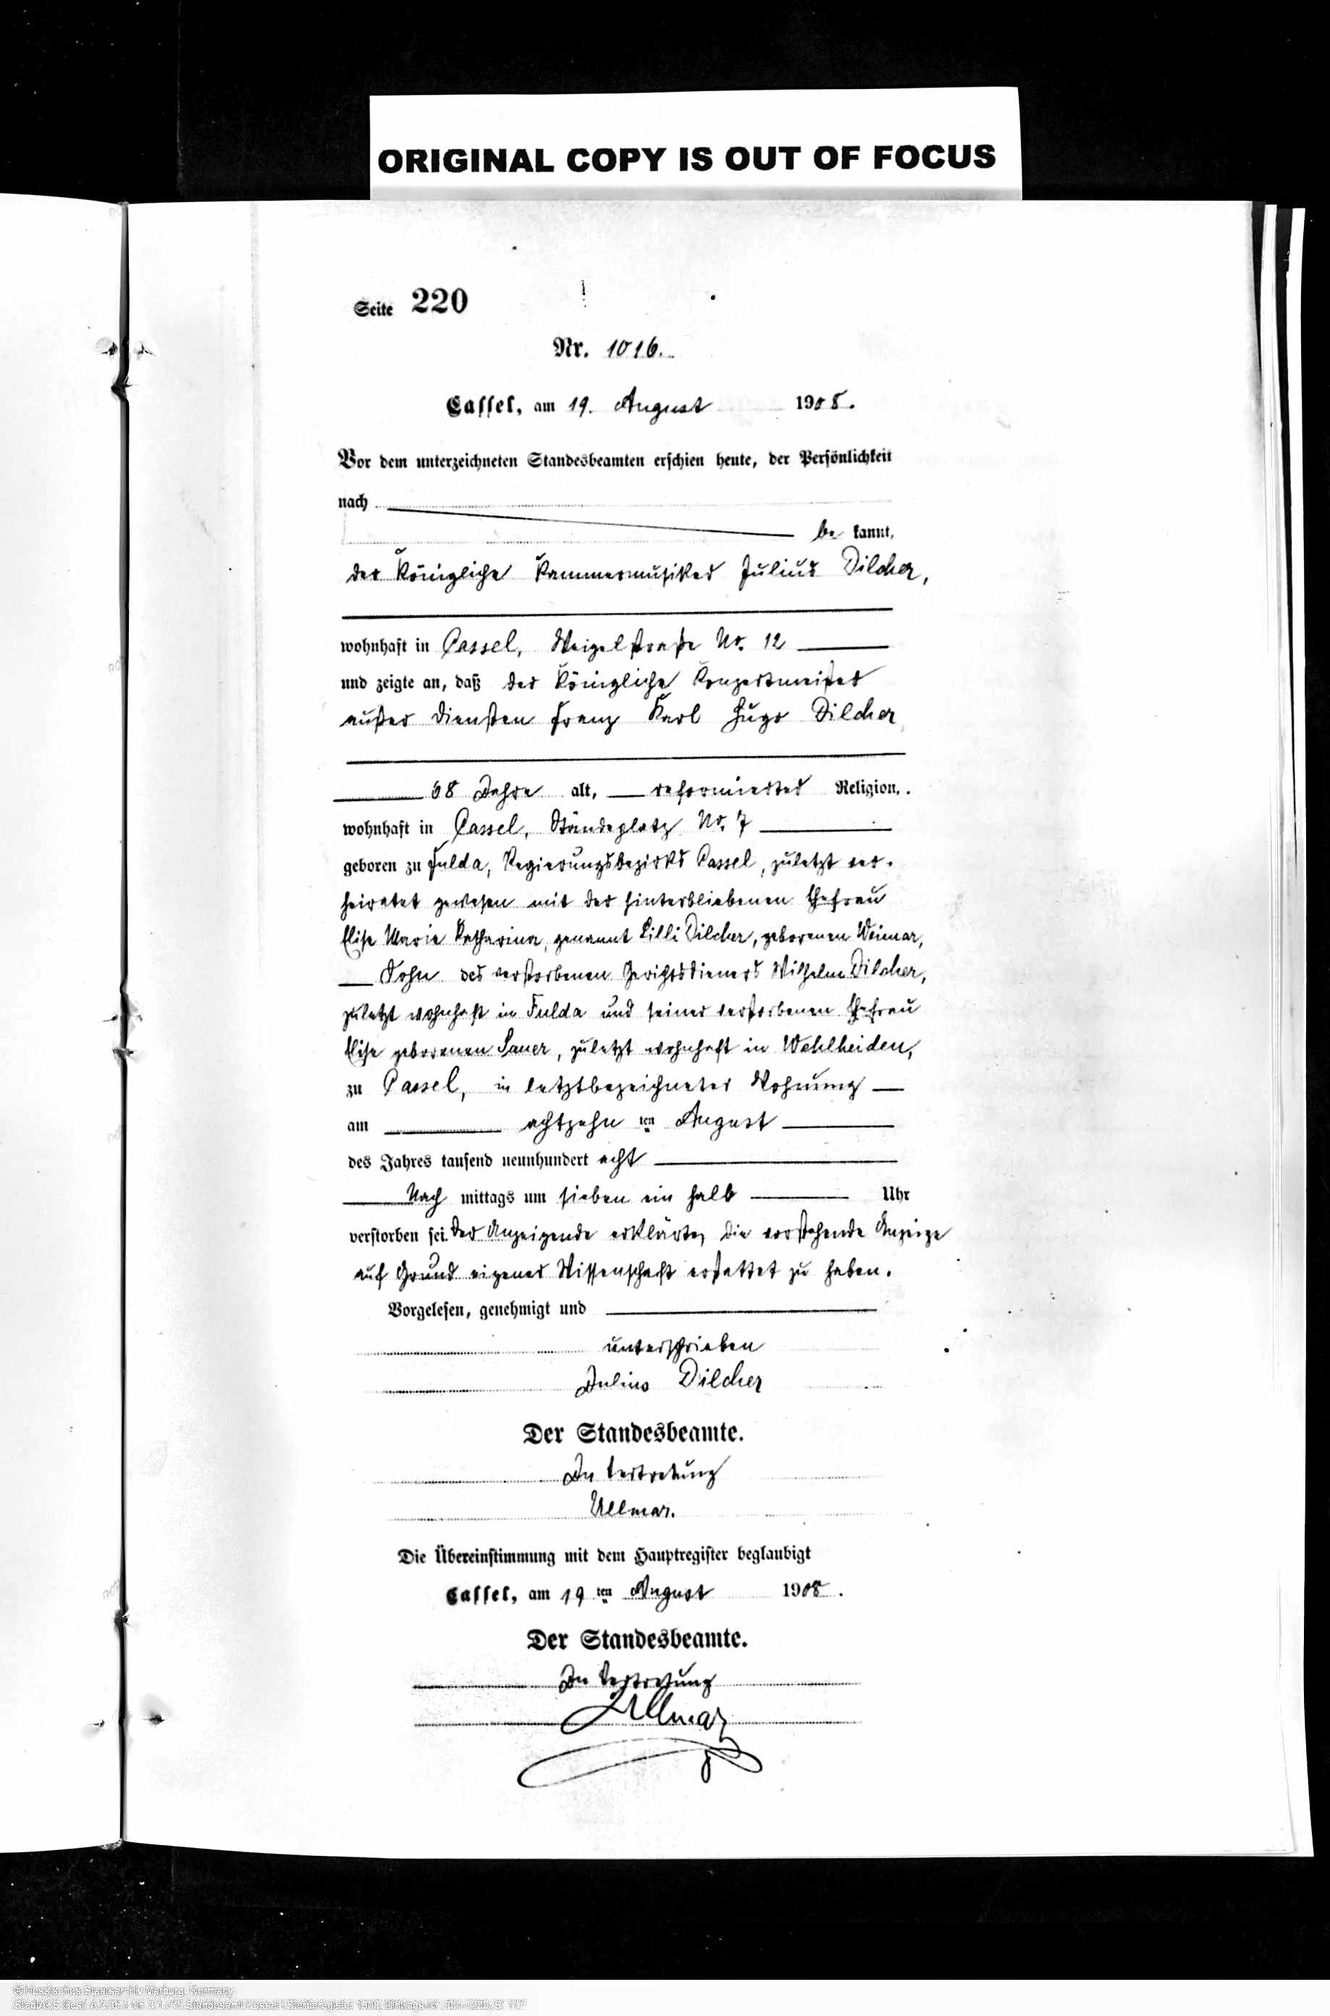 ORIGINAL COPY IS OUT OF FOCUS
Seite 220
Nr. 1016.
Cassel, am 19. August 1908.
Vor dem unterzeichneten Standesbeamten erschien heute, der Persönlichkeit
nach
be kannt,
der Königliche Kammermusiker Julius Dilcher,
wohnhaft in Cassel, Weigelstraße No. 12
und zeigte an, daß der Königliche Konzertmeister
außer Diensten Franz Karl Hugo Dilcher
68 Jahre alt, reformierter Religion,
wohnhaft in Cassel, Ständeplatz No. 7
geboren zu Fulda, Regierungsbezirks Cassel, zuletzt ver-
heiratet gewesen mit der hinterbliebenen Ehefrau
Elise Marie Katharina, genannt Lilli Dilcher, geborenen Weimar,
Sohn des verstorbenen Gerichtsdieners Wilhelm Dilcher,
zuletzt wohnhaft in Fulda und seiner verstorbenen Ehefrau
Elise geborenen Sauer, zuletzt wohnhaft in Wehlheiden,
zu Cassel, in letztbezeichneter Wohnung
am achtzehn ten August
des Jahres tausend neunhundert acht
Nach mittags um sieben ein halb Uhr
verstorben sei. Der Anzeigende erklärte, die vorstehende Anzeige
auf Grund eigener Wissenschaft erstattet zu haben.
Vorgelesen, genehmigt und
unterschrieben
Julius Dilcher
Der Standesbeamte.
In Vertretung
Ullmar.
Die Übereinstimmung mit dem Hauptregister beglaubigt
Cassel, am 19 ten August 1908.
Der Standesbeamte.
In Vertretung
Ullmar